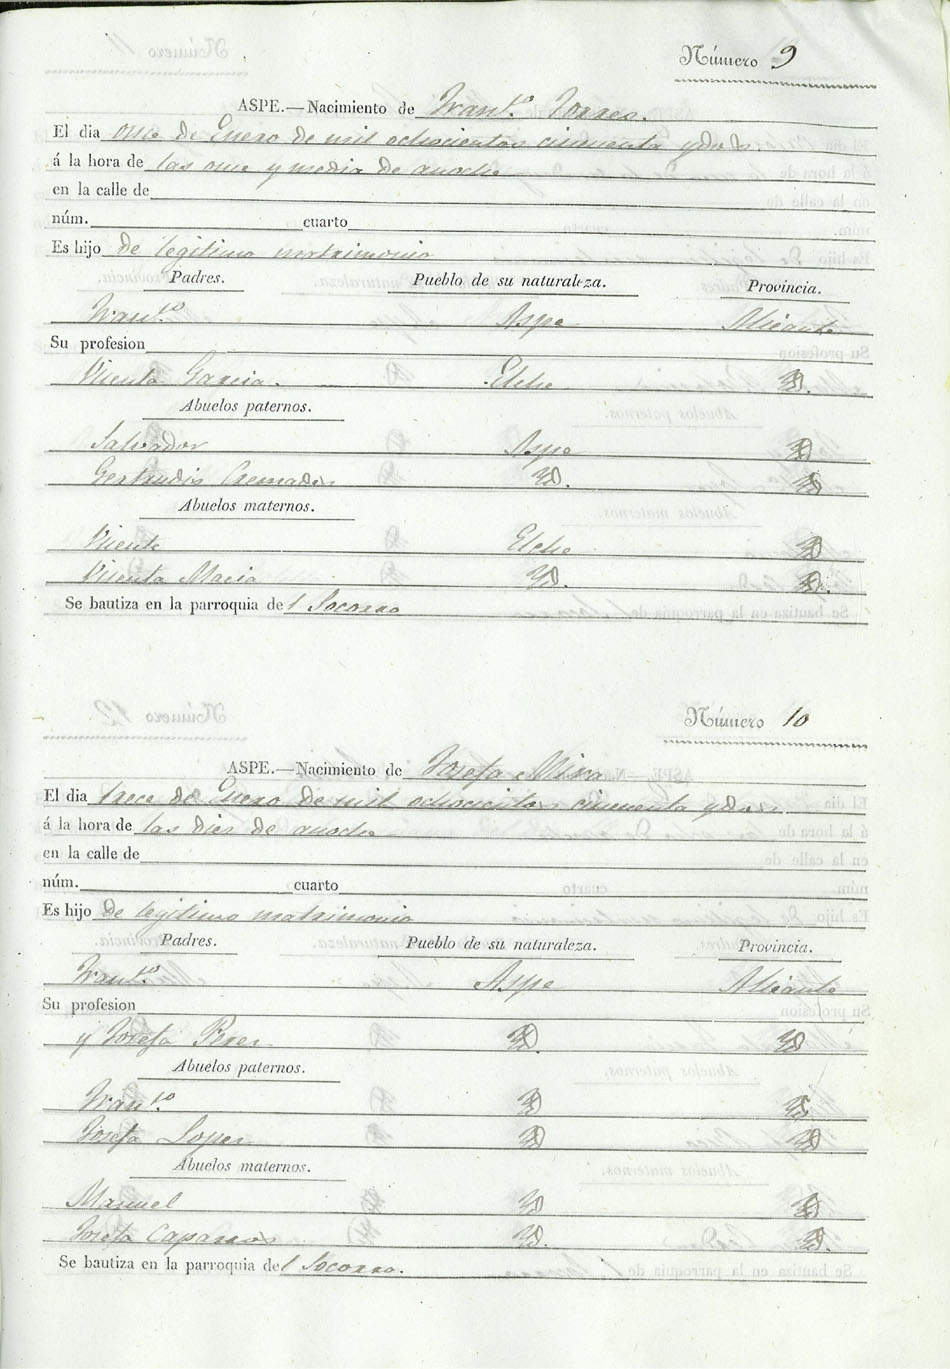 Número 9
ASPE.—Nacimiento de Franco. Torres.
El dia once de Enero de mil ochocientos cincuenta y dos
á la hora de las once y media de anoche
en la calle de
núm. cuarto
Es hijo de legitimo matrimonio
Padres. Pueblo de su naturaleza. Provincia.
Franco. Aspe Alicante
Su profesion
Vicenta Garcia. Elche Yd.
Abuelos paternos.
Salvador Aspe Yd
Gertrudis Cremades Yd. Yd
Abuelos maternos.
Vicente Elche Yd
Vicenta Macia Yd. Yd.
Se bautiza en la parroquia del Socorro
Número 10
ASPE.—Nacimiento de Josefa Mira
El dia trece de Enero de mil ochocientos cincuenta y dos
á la hora de las dies de anoche
en la calle de
núm. cuarto
Es hijo de legitimo matrimonio
Padres. Pueblo de su naturaleza. Provincia.
Franco. Aspe Alicante
Su profesion
y Josefa Perez Yd. Yd
Abuelos paternos.
Franco. Yd Yd
Josefa Lopez Yd Yd
Abuelos maternos.
Manuel Yd Yd
Josefa Caparros Yd. Yd.
Se bautiza en la parroquia del Socorro.